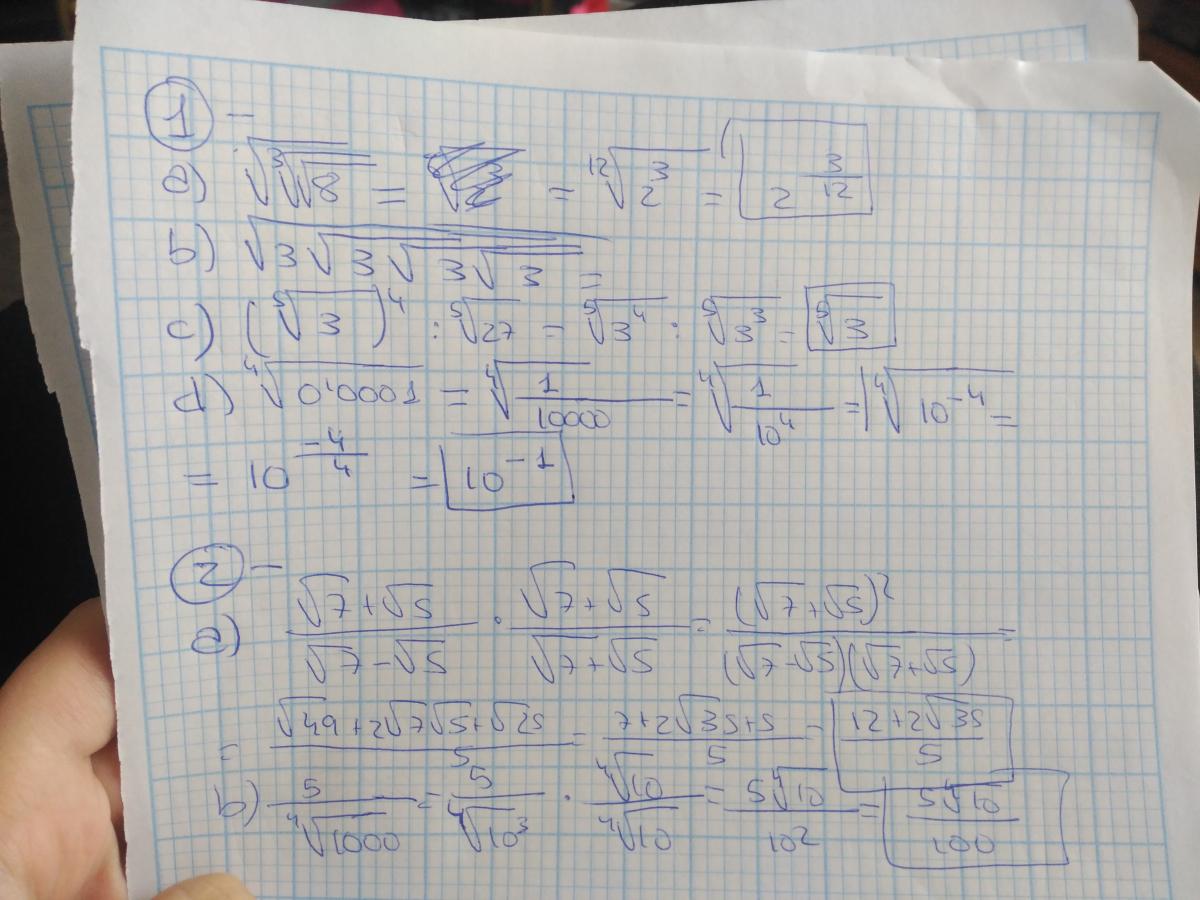 1 -
a) √∛√8 = = ¹²√2³ = 2^(3/12)
b) √3√3√3√3 =
c) (⁵√3)⁴ : ⁵√27 = ⁵√3⁴ : ⁵√3³ = ⁵√3
d) ⁴√0'0001 = ⁴√(1/10000) = ⁴√(1/10⁴) = ⁴√10⁻⁴ =
= 10^(-4/4) = 10⁻¹
2 -
a) (√7+√5)/(√7-√5) · (√7+√5)/(√7+√5) = (√7+√5)²/(√7-√5)(√7+√5) =
= (√49+2√7√5+√25)/5 = (7+2√35+5)/5 = (12+2√35)/5
b) 5/⁴√1000 = 5/⁴√10³ · ⁴√10/⁴√10 = 5⁴√10/10² = 5⁴√10/100